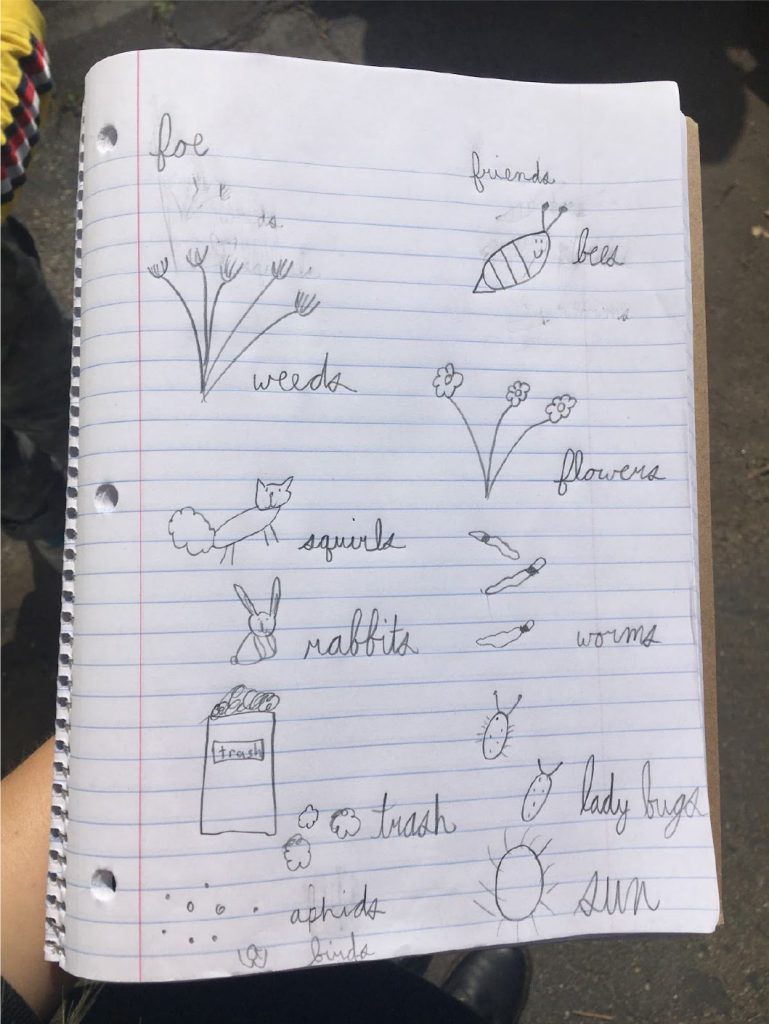 foe
weeds
squirls
rabbits
trash
trash
aphids
birds
friends
bees
flowers
worms
lady bugs
sun